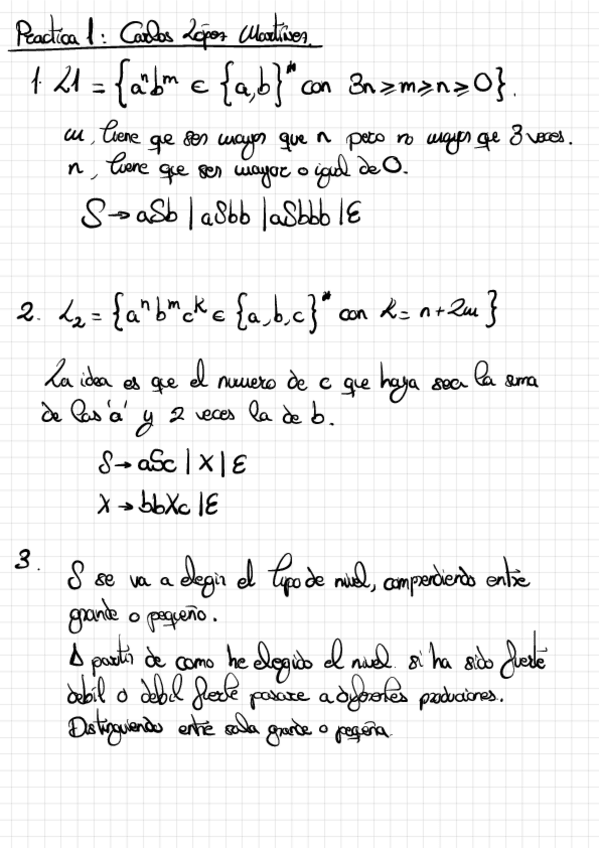 Practica 1: Carlos López Martínez
1. L1 = {aⁿbᵐ ∈ {a,b}* con 3n ≥ m ≥ n ≥ 0}.
m, tiene qe ser mayor que n pero no mayor qe 3 veces.
n, tiene que ser mayor o igual de 0.
S → aSb | aSbb | aSbbb | ε
2. L₂ = {aⁿbᵐcᵏ ∈ {a,b,c}* con k = n+2m}
La idea es que el numero de c que haya sea la suma
de las 'a' y 2 veces la de b.
S → aSc | X | ε
X → bbXc | ε
3. S se va a elegir el tipo de nivel, comprendiendo entre
grande o pequeño.
A partir de como he elegido el nivel si ha sido fuerte
debil o debil fuerte pasare a diferentes produciones.
Distinguiendo entre sala grande o pequeña.